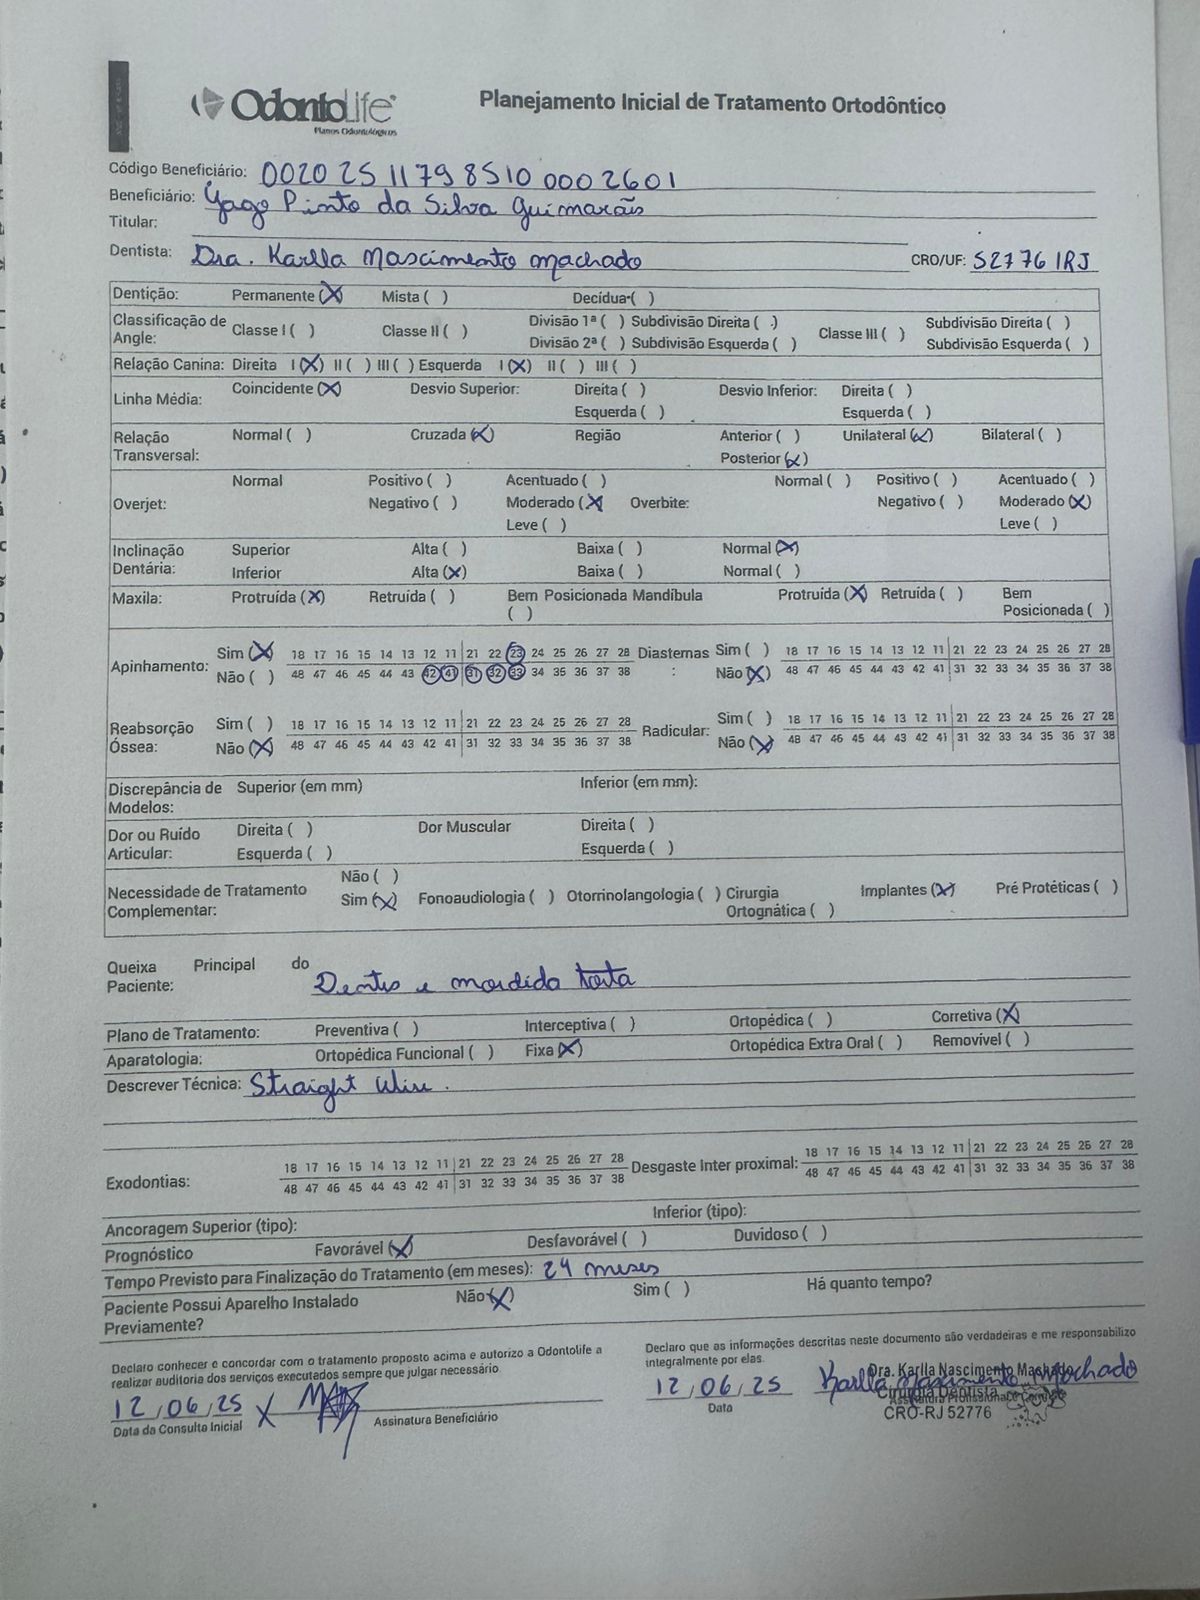 OdontoLife
Planos Odontológicos
Planejamento Inicial de Tratamento Ortodôntico
Código Beneficiário: 0020 25 11 79 8510 000 2601
Beneficiário: Yago Pinto da Silva Guimarães
Titular:
Dentista: Dra. Karlla Nascimento Machado CRO/UF: 52776 IRJ
Dentição: Permanente (X) Mista ( ) Decídua ( )
Classificação de Angle: Classe I ( ) Classe II ( ) Divisão 1ª ( ) Subdivisão Direita ( ) Classe III ( ) Subdivisão Direita ( )
Divisão 2ª ( ) Subdivisão Esquerda ( ) Subdivisão Esquerda ( )
Relação Canina: Direita I (X) II ( ) III ( ) Esquerda I (X) II ( ) III ( )
Linha Média: Coincidente (X) Desvio Superior: Direita ( ) Desvio Inferior: Direita ( )
Esquerda ( ) Esquerda ( )
Relação Transversal: Normal ( ) Cruzada (X) Região Anterior ( ) Unilateral (X) Bilateral ( )
Posterior (X)
Overjet: Normal Positivo ( ) Acentuado ( ) Normal ( ) Positivo ( ) Acentuado ( )
Negativo ( ) Moderado (X) Overbite: Negativo ( ) Moderado (X)
Leve ( ) Leve ( )
Inclinação Dentária: Superior Alta ( ) Baixa ( ) Normal (X)
Inferior Alta (X) Baixa ( ) Normal ( )
Maxila: Protruída (X) Retruída ( ) Bem Posicionada ( ) Mandíbula Protruída (X) Retruída ( ) Bem Posicionada ( )
Apinhamento: Sim (X) 18 17 16 15 14 13 12 11 21 22 23 24 25 26 27 28 Diastemas: Sim ( ) 18 17 16 15 14 13 12 11 21 22 23 24 25 26 27 28
Não ( ) 48 47 46 45 44 43 42 41 31 32 33 34 35 36 37 38 Não (X) 48 47 46 45 44 43 42 41 31 32 33 34 35 36 37 38
Reabsorção Óssea: Sim ( ) 18 17 16 15 14 13 12 11 21 22 23 24 25 26 27 28 Radicular: Sim ( ) 18 17 16 15 14 13 12 11 21 22 23 24 25 26 27 28
Não (X) 48 47 46 45 44 43 42 41 31 32 33 34 35 36 37 38 Não (X) 48 47 46 45 44 43 42 41 31 32 33 34 35 36 37 38
Discrepância de Modelos: Superior (em mm) Inferior (em mm):
Dor ou Ruído Articular: Direita ( ) Dor Muscular Direita ( )
Esquerda ( ) Esquerda ( )
Necessidade de Tratamento Complementar: Não ( )
Sim (X) Fonoaudiologia ( ) Otorrinolangologia ( ) Cirurgia Ortognática ( ) Implantes (X) Pré Protéticas ( )
Queixa Principal do Paciente: Dentes e mordida torta
Plano de Tratamento: Preventiva ( ) Interceptiva ( ) Ortopédica ( ) Corretiva (X)
Aparatologia: Ortopédica Funcional ( ) Fixa (X) Ortopédica Extra Oral ( ) Removível ( )
Descrever Técnica: Straight Wire.
Exodontias: 18 17 16 15 14 13 12 11 21 22 23 24 25 26 27 28 Desgaste Inter proximal: 18 17 16 15 14 13 12 11 21 22 23 24 25 26 27 28
48 47 46 45 44 43 42 41 31 32 33 34 35 36 37 38 48 47 46 45 44 43 42 41 31 32 33 34 35 36 37 38
Ancoragem Superior (tipo): Inferior (tipo):
Prognóstico Favorável (X) Desfavorável ( ) Duvidoso ( )
Tempo Previsto para Finalização do Tratamento (em meses): 24 meses
Paciente Possui Aparelho Instalado Previamente? Não (X) Sim ( ) Há quanto tempo?
Declaro conhecer e concordar com o tratamento proposto acima e autorizo a Odontolife a
realizar auditoria dos serviços executados sempre que julgar necessário
Declaro que as informações descritas neste documento são verdadeiras e me responsabilizo
integralmente por elas.
12/06/25 X
Data da Consulta Inicial Assinatura Beneficiário
12/06/25 Karlla Nascimento Machado
Data
Dra. Karlla Nascimento Machado
Cirurgiã Dentista
CRO-RJ 52776